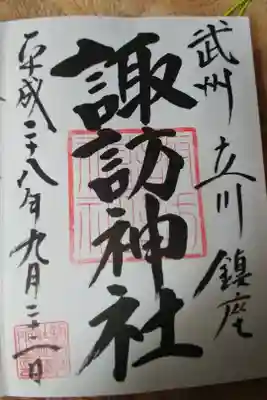 武州 立川 鎮座
諏訪神社
平成二十八年九月二十一日